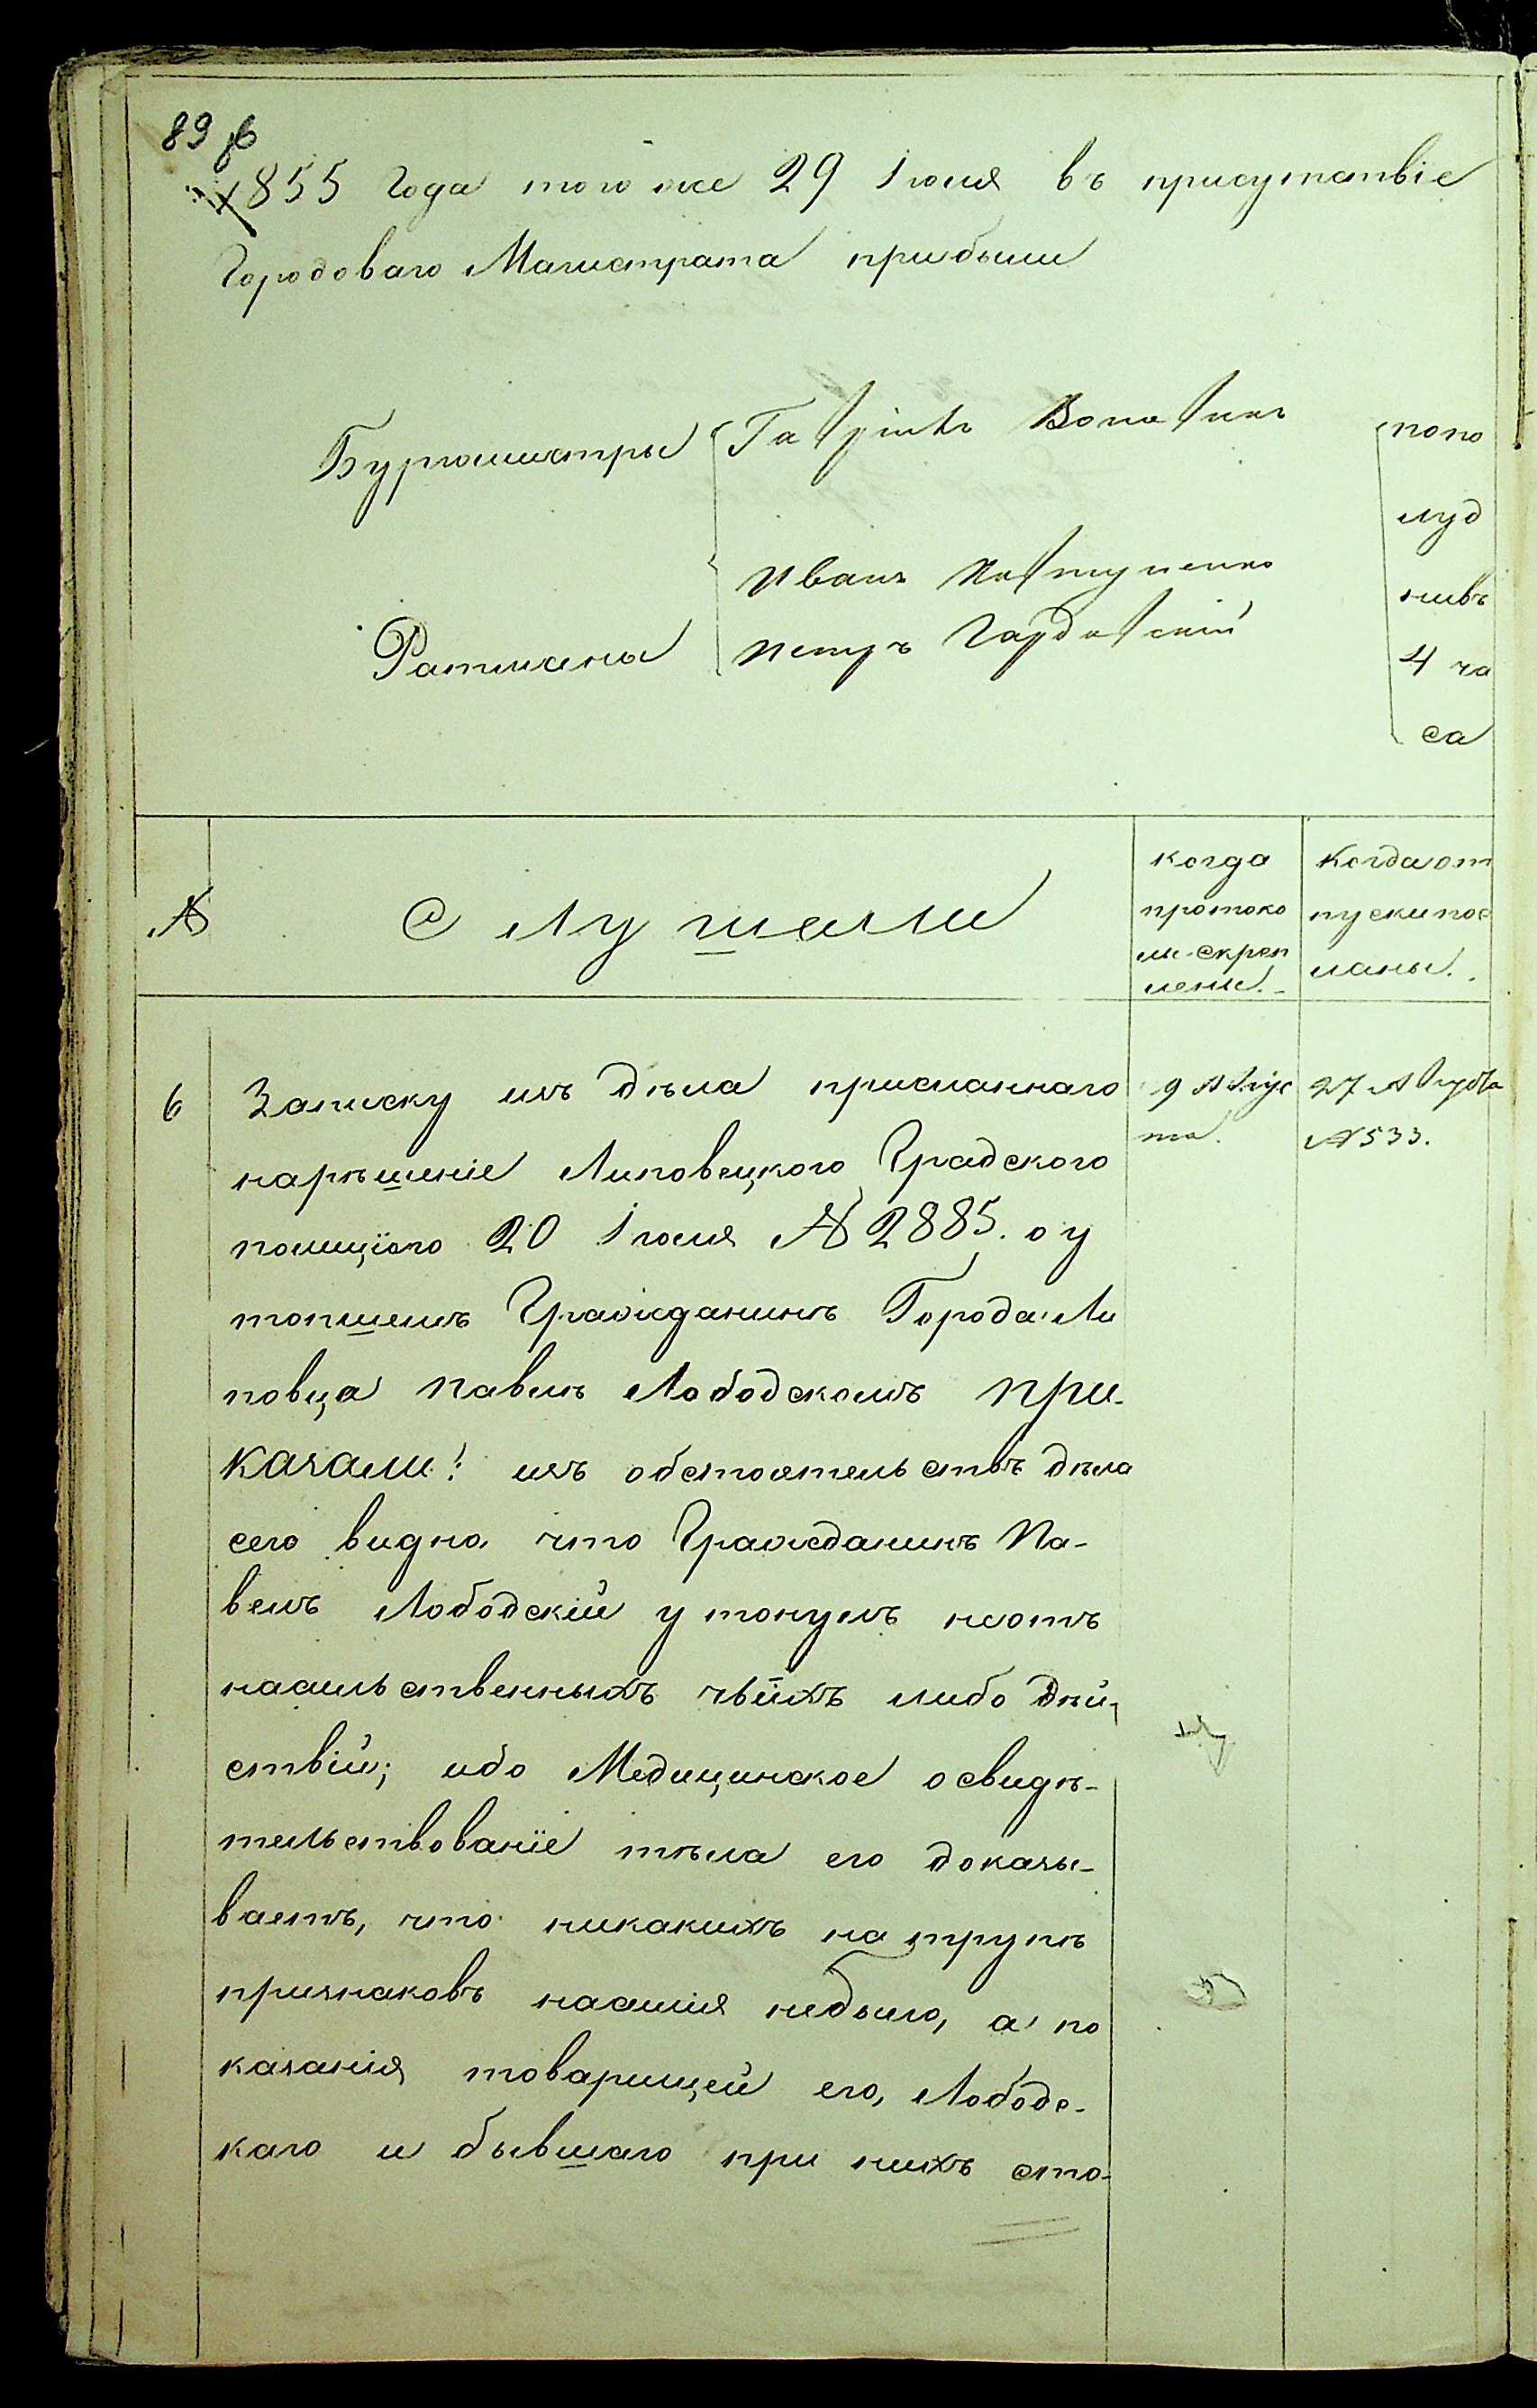 89
1855 Года того же 29 Іюля въ присутствіе
Городоваго Магистрата прибыли
Бургомистры
Гаврiилъ
Иванъ
Ратманы
Петръ Гардовскій
попо
луд
нивъ
4 ча
са
№
Слушали
когда
протоко
лы скреп
лены.
Когда от
пуски пос
ланы.
6
Записку изъ дѣла присланнаго
нарѣшеніе Липовецкого Градского
полиціого 20 Іюля № 2885. о у
топшемъ Гражданинѣ Города Ли
повца Павлѣ Лободскомъ при-
казали: изъ обстоятельствъ дѣла
сего видно что Гражданинъ Па-
велъ Лободскій утонулъ неотъ
насильственныхъ чьихъ либо дѣй-
ствій; ибо Медицинское освидѣ-
тельствованіе тѣла его доказы-
ваетъ, что никакихъ на трупѣ
признаковъ насилія небыло, а по
казанія товарищей его, Лободс-
каго и бывшаго при нихъ сто-
9 Авгус
та.
27 Августа
№ 533.